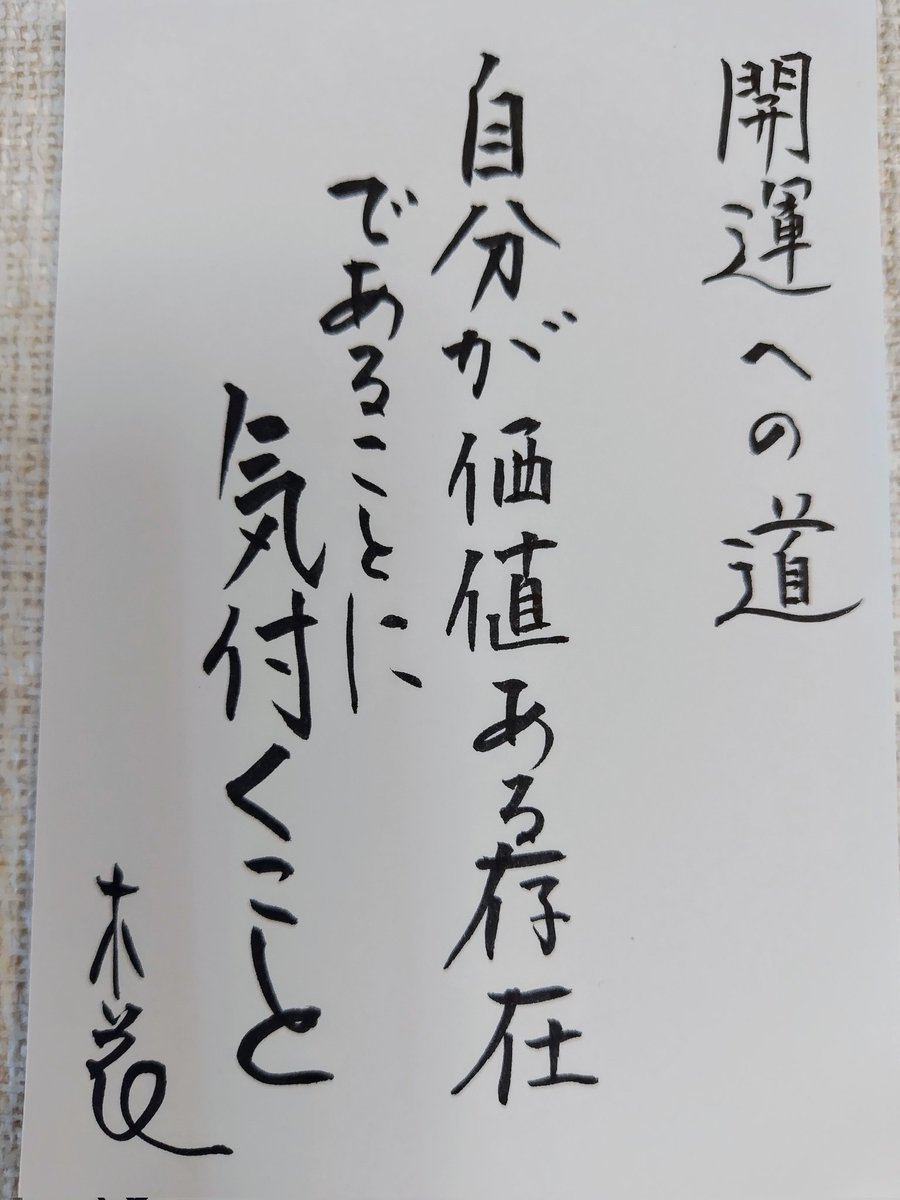 開運への道
自分が価値ある存在
であることに
気付くこと
木花